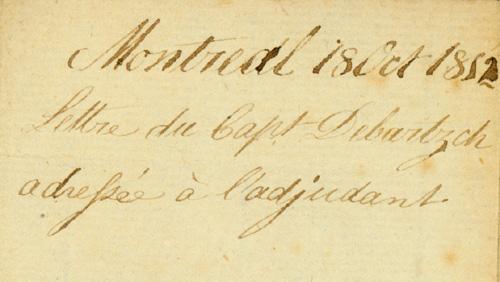 Montreal 18 Oct 1812
Lettre du Capt. Debartzch
adressée à l'adjudant.